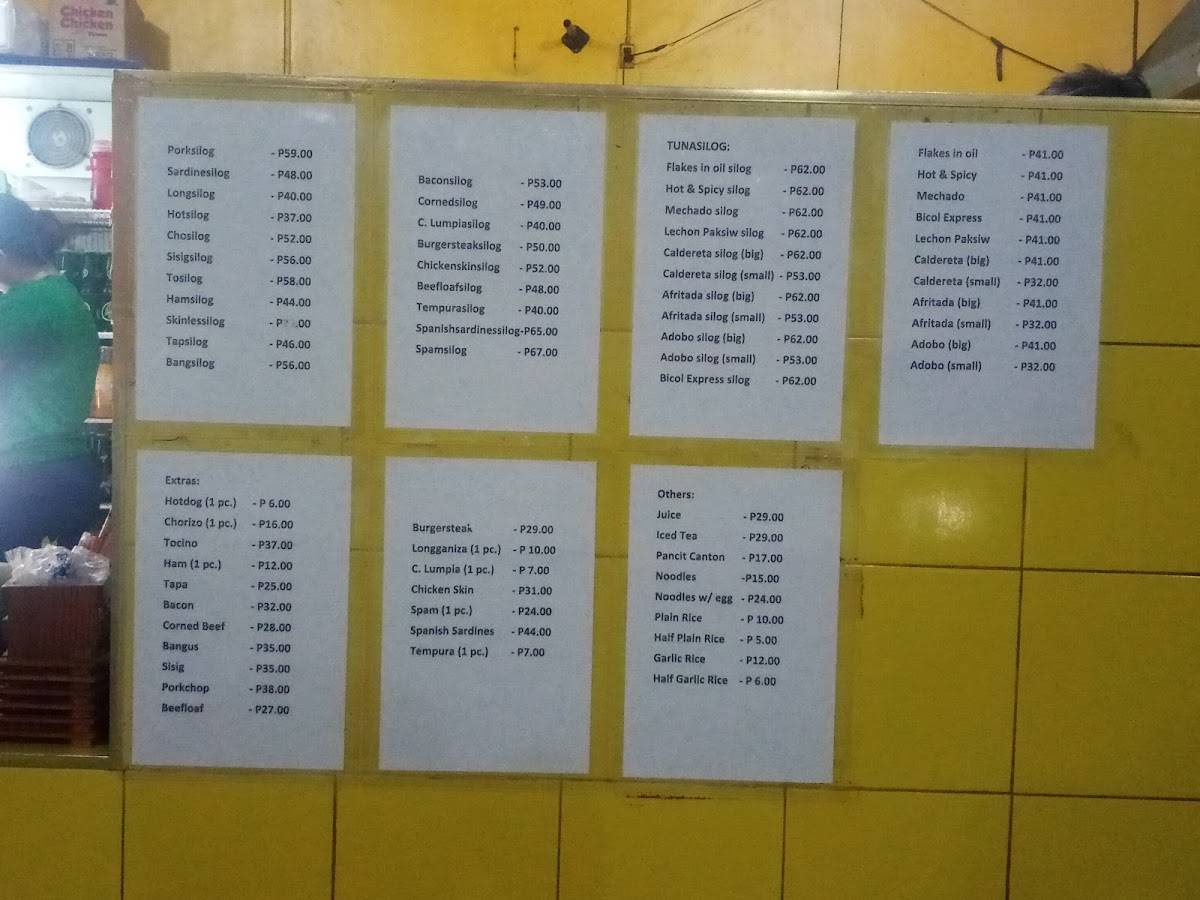 Chicken
Chicken
Porksilog - P59.00
Sardinesilog - P48.00
Longsilog - P40.00
Hotsilog - P37.00
Chosilog - P52.00
Sisigsilog - P56.00
Tosilog - P58.00
Hamsilog - P44.00
Skinlessilog - P .00
Tapsilog - P46.00
Bangsilog - P56.00
Baconsilog - P53.00
Cornedsilog - P49.00
C. Lumpiasilog - P40.00
Burgersteaksilog - P50.00
Chickenskinsilog - P52.00
Beefloafsilog - P48.00
Tempurasilog - P40.00
Spanishsardinessilog-P65.00
Spamsilog - P67.00
TUNASILOG:
Flakes in oil silog - P62.00
Hot & Spicy silog - P62.00
Mechado silog - P62.00
Lechon Paksiw silog - P62.00
Caldereta silog (big) - P62.00
Caldereta silog (small) - P53.00
Afritada silog (big) - P62.00
Afritada silog (small) - P53.00
Adobo silog (big) - P62.00
Adobo silog (small) - P53.00
Bicol Express silog - P62.00
Flakes in oil - P41.00
Hot & Spicy - P41.00
Mechado - P41.00
Bicol Express - P41.00
Lechon Paksiw - P41.00
Caldereta (big) - P41.00
Caldereta (small) - P32.00
Afritada (big) - P41.00
Afritada (small) - P32.00
Adobo (big) - P41.00
Adobo (small) - P32.00
Extras:
Hotdog (1 pc.) - P 6.00
Chorizo (1 pc.) - P16.00
Tocino - P37.00
Ham (1 pc.) - P12.00
Tapa - P25.00
Bacon - P32.00
Corned Beef - P28.00
Bangus - P35.00
Sisig - P35.00
Porkchop - P38.00
Beefloaf - P27.00
Burgersteak - P29.00
Longganiza (1 pc.) - P 10.00
C. Lumpia (1 pc.) - P 7.00
Chicken Skin - P31.00
Spam (1 pc.) - P24.00
Spanish Sardines - P44.00
Tempura (1 pc.) - P7.00
Others:
Juice - P29.00
Iced Tea - P29.00
Pancit Canton - P17.00
Noodles -P15.00
Noodles w/ egg - P24.00
Plain Rice - P 10.00
Half Plain Rice - P 5.00
Garlic Rice - P12.00
Half Garlic Rice - P 6.00